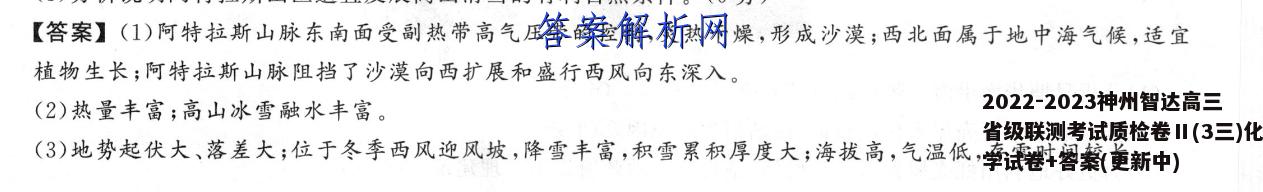 【答案】(1)阿特拉斯山脉东南面受副热带高气压 燥,形成沙漠;西北面属于地中海气候,适宜
答案解析网
植物生长;阿特拉斯山脉阻挡了沙漠向西扩展和盛行西风向东深入。
(2)热量丰富;高山冰雪融水丰富。
(3)地势起伏大、落差大;位于冬季西风迎风坡,降雪丰富,积雪累积厚度大;海拔高,气温低,
2022-2023神州智达高三
省级联测考试质检卷Ⅱ(3三)化
学试卷+答案(更新中)